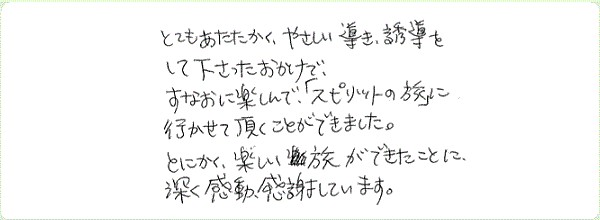 とてもあたたかく、やさしい導き、誘導を
して下さったおかげで、
すなおに楽しんで、「スピリットの旅」に
行かせて頂くことができました。
とにかく、楽しい旅ができたことに、
深く感動、感謝しています。